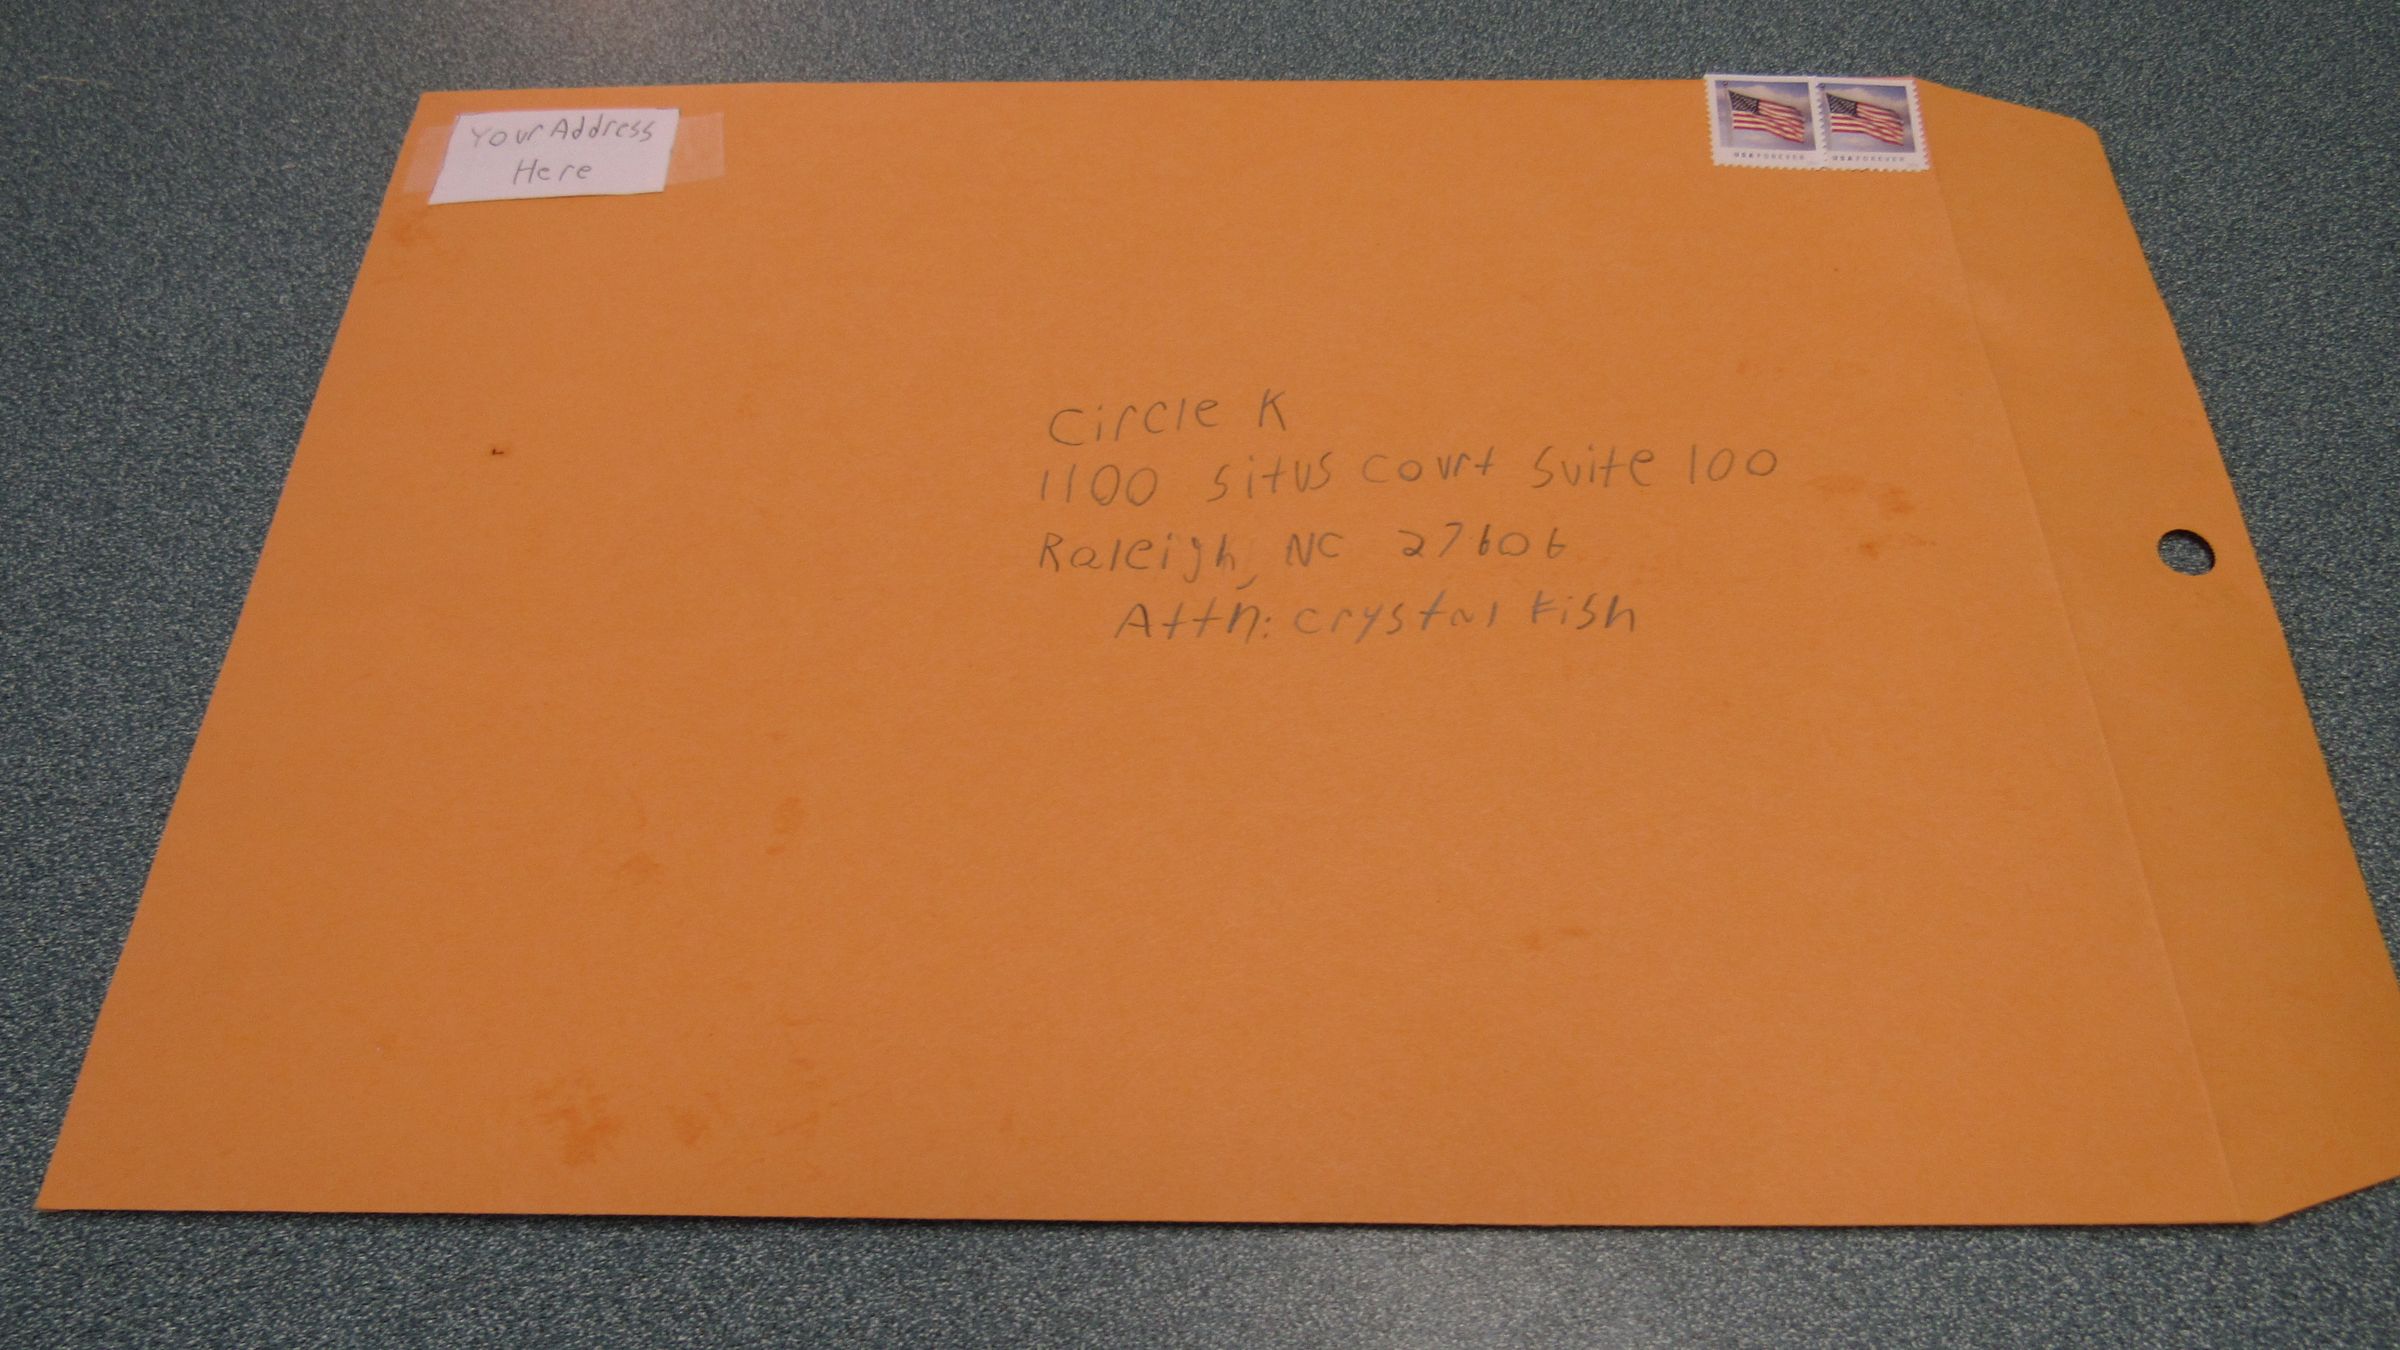 Your Address
Here
USA FOREVER
USA FOREVER
Circle K
1100 Situs Court Suite 100
Raleigh, NC 27606
Attn: Crystal Fish